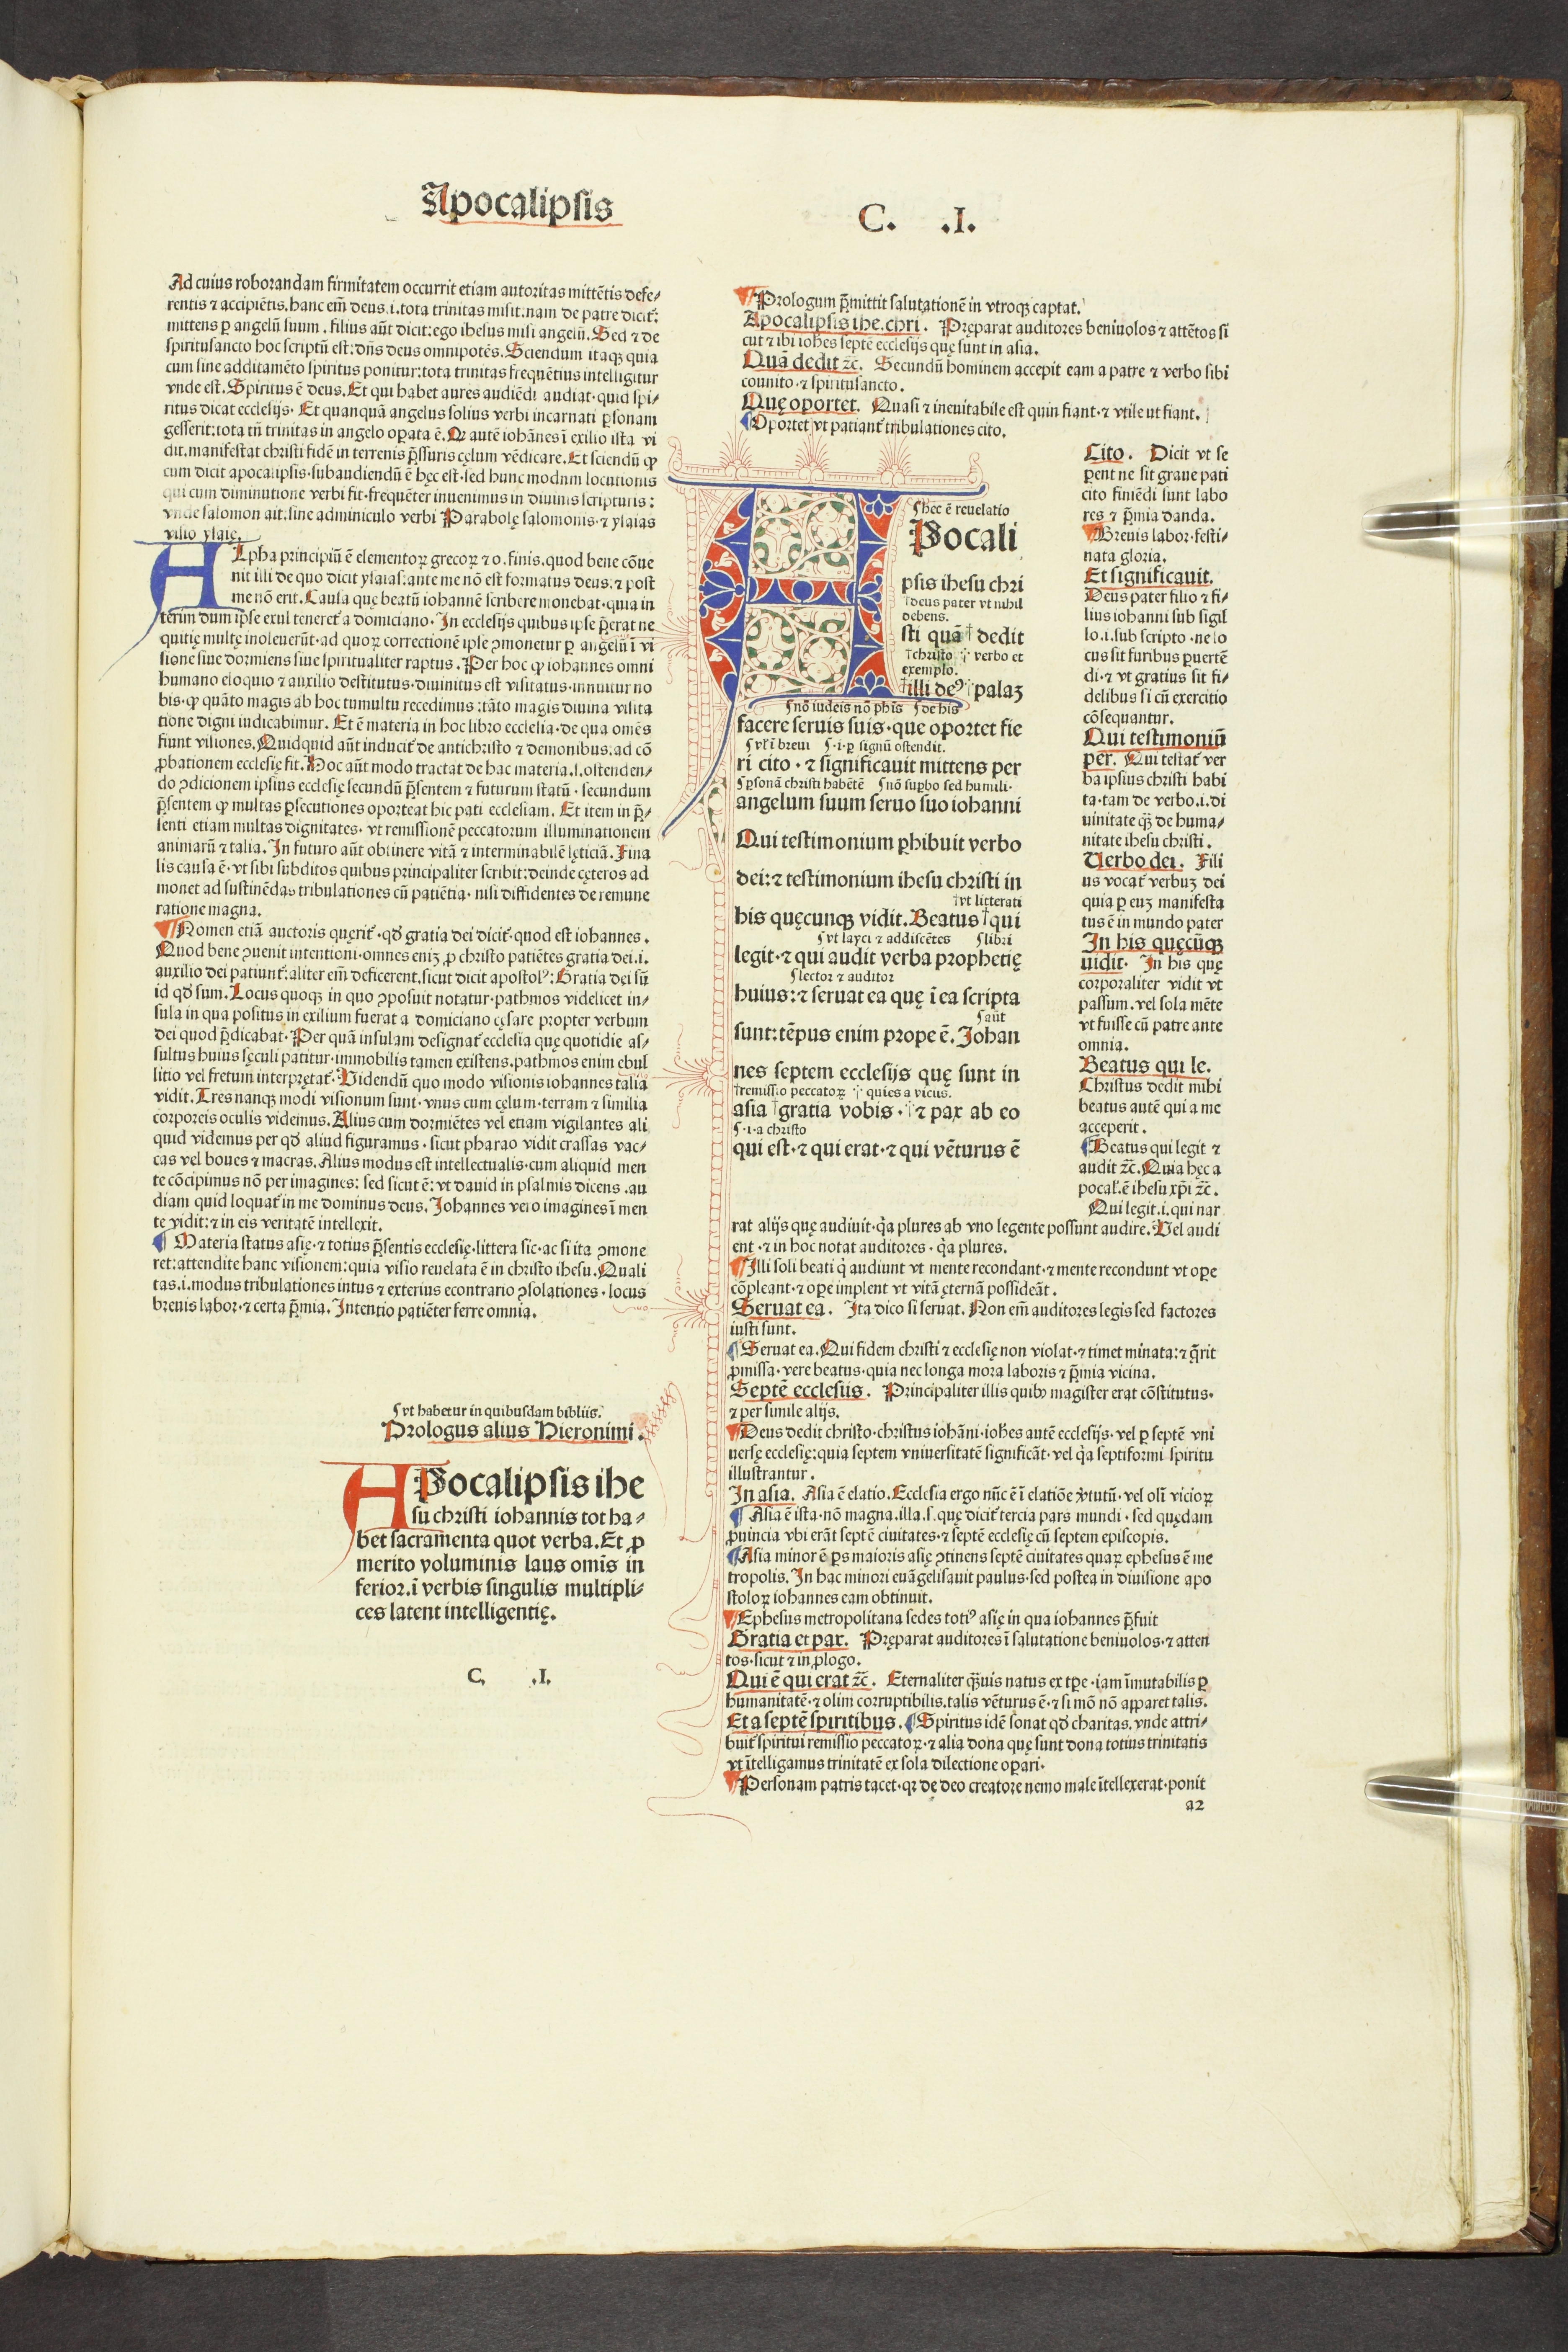 Apocalipsis
C. .I.
Ad cuius roborandam firmitatem occurrit etiam autoritas mittētis defe/
rentis ⁊ accipiētis. hanc em̄ deus .i. tota trinitas misit: nam de patre dicit᷑:
mittens ꝑ angelū suum . filius aūt dicit: ego ihesus misi angelū. Sed ⁊ de
spiritusancto hoc scriptū est: dn̄s deus omnipotēs. Sciendum itaqꝫ quia
cum sine additamēto spiritus ponitur: tota trinitas frequētius intelligitur
vnde est. Spiritus ē deus. Et qui habet aures audiēdi audiat· quid spi/
ritus dicat ecclesijs· Et quanquā angelus solius verbi incarnati ꝑsonam
gesserit: tota tn̄ trinitas in angelo oꝑata ē. Qꝛ autē iohānes ī exilio ista vi
dit. manifestat christi fidē in terrenis p̄ssuris cęlum vēdicare. Et sciendū ꝙ
cum dicit apocalipsis· subaudiendū ē hęc est· sed hunc modum locutionis
qui cum diminutione verbi fit· frequēter inuenimus in diuinis scripturis:
vnde salomon ait: sine adminiculo verbi Parabolę salomonis· ⁊ ysaias
visio ysaię.
ALpha principiū ē elementoꝝ grecoꝝ ⁊ o. finis. quod bene cōue
nit illi de quo dicit ysaias: ante me nō est formatus deus: ⁊ post
me nō erit. Causa quę beatū iohannē scribere monebat· quia in
terim dum ipse exul teneret᷑ a domiciano· In ecclesijs quibus ipse p̄erat ne
quitię multę inoleuerūt· ad quoꝝ correctionē ipse ꝯmonetur ꝑ angelū ī vi
sione siue dormiens siue spiritualiter raptus. Per hoc ꝙ iohannes omni
humano eloquio ⁊ auxilio destitutus· diuinitus est visitatus· innuitur no
bis· ꝙ quāto magis ab hoc tumultu recedimus: tāto magis diuina visita
tione digni iudicabimur. Et ē materia in hoc libro ecclesia· de qua omēs
fiunt visiones. Quidquid aūt inducit᷑ de antichristo ⁊ demonibus. ad cō
ꝓbationem ecclesię fit. Hoc aūt modo tractat de hac materia. s. ostenden/
do ꝯdicionem ipsius ecclesię secundū p̄sentem ⁊ futurum statū· secundum
p̄sentem ꝙ multas ꝑsecutiones oporteat hic pati ecclesiam. Et item in p̄/
senti etiam multas dignitates· vt remissionē peccatorum illuminationem
animarū ⁊ talia. In futuro aūt obtinere vitā ⁊ interminabilē lęticiā. Fina
lis causa ē· vt sibi subditos quibus principaliter scribit: deinde cęteros ad
monet ad sustinēdas tribulationes cū patiētia· nisi diffidentes de remune
ratione magna.
¶Nomen etiā auctoris quęrit᷑· qd̓ gratia dei dicit᷑· quod est iohannes.
Quod bene ꝯuenit intentioni· omnes enīꝫ ꝓ christo patiētes gratia dei .i.
auxilio dei patiunt᷑: aliter em̄ deficerent. sicut dicit apostolꝰ: Gratia dei sū
id qd̓ sum. Locus quoqꝫ in quo ꝯposuit notatur· pathmos videlicet in/
sula in qua positus in exilium fuerat a domiciano cęsare propter verbum
dei quod p̄dicabat· Per quā insulam designat᷑ ecclesia quę quotidie as/
sultus huius sęculi patitur· immobilis tamen existens. pathmos enim ebul
litio vel fretum interpretat᷑· Videndū quo modo visionis iohannes talia
vidit. Tres nanqꝫ modi visionum sunt· vnus cum cęlum· terram ⁊ similia
corporeis oculis videmus. Alius cum dormiētes vel etiam vigilantes ali
quid videmus per qd̓ aliud figuramus· sicut pharao vidit crassas vac/
cas vel boues ⁊ macras. Alius modus est intellectualis· cum aliquid men
te cōcipimus nō per imagines: sed sicut ē: vt dauid in psalmis dicens .au
diam quid loquat᷑ in me dominus deus. Johannes vero imagines ī men
te vidit: ⁊ in eis veritatē intellexit.
¶Materia status asię· ⁊ totius p̄sentis ecclesię· littera sic· ac si ita ꝯmone
ret: attendite hanc visionem: quia visio reuelata ē in christo ihesu. Quali
tas .i. modus tribulationes intus ⁊ exterius econtrario ꝯsolationes· locus
breuis labor· ⁊ certa p̄mia. Intentio patiēter ferre omnia.
ſvt habetur in quibusdam bibliis.
Prologus alius Hieronimi.
APocalipsis ihe
su christi iohannis tot ha-
bet sacramenta quot verba. Et ꝓ
merito voluminis laus omīs in
ferior. ī verbis singulis multipli-
ces latent intelligentię.
C. .I.
¶Prologum p̄mittit salutationē in vtroqꝫ captat.
Apocalipsis ihe. chri. Pręparat auditores beniuolos ⁊ attētos si
cut ⁊ ibi iohēs septē ecclesijs quę sunt in asia.
Quā dedit ⁊c̄. Secundū hominem accepit eam a patre ⁊ verbo sibi
counito· ⁊ spiritusancto.
Quę oportet. Quasi ⁊ ineuitabile est quin fiant· ⁊ vtile ut fiant.
¶Oportet vt patiant᷑ tribulationes cito.
ſhec ē reuelatio
APocali
psis ihesu chri
†deus pater vt nihil
debens.
sti quā† dedit
†christo ⸪ verbo et
exemplo.
†illi deꝰ ⸪palaꝫ
ſnō iudeis nō phīs ſde his
facere seruis suis· que oportet fie
ſvt᷑ ī breui ſ·i·ꝑ signū ostendit.
ri cito · ⁊ significauit mittens per
ſꝑsonā christi habētē ſnō suꝑbo sed humili·
angelum suum seruo suo iohanni
Qui testimonium ꝑhibuit verbo
dei: ⁊ testimonium ihesu christi in
†vt litterati
his quęcunqꝫ vidit. Beatus †qui
ſvt layci ⁊ addiscētes ſlibri
legit· ⁊ qui audit verba prophetię
ſlector ⁊ auditor
huius: ⁊ seruat ea quę ī ea scripta
ſaūt
sunt: tēpus enim prope ē. Johan
nes septem ecclesijs quę sunt in
†remissio peccatoꝝ ⸪ quies a vicijs.
asia †gratia vobis · ⸪⁊ pax ab eo
ſ·i·a christo
qui est· ⁊ qui erat· ⁊ qui vēturus ē
Cito. Dicit vt se
ꝑent ne sit graue pati
cito finiēdi sunt labo
res ⁊ p̄mia danda.
¶Breuis labor· festi/
nata gloria.
Et significauit.
Deus pater filio ⁊ fi/
lius iohanni sub sigil
lo .i. sub scripto · ne lo
cus sit furibus ꝑuertē
di· ⁊ vt gratius sit fi/
delibus si cū exercitio
cōsequantur.
Qui testimoniū
per. Qui testat᷑ ver
ba ipsius christi habi
ta· tam de verbo .i. di
uinitate qꝫ̄ de huma/
nitate ihesu christi.
Verbo dei. Fili
us vocat᷑ verbuꝫ dei
quia ꝑ euꝫ manifesta
tus ē in mundo pater
In his quęcūqꝫ
uidit· In his quę
corporaliter vidit vt
passum. vel sola mēte
vt fuisse cū patre ante
omnia.
Beatus qui le.
Christus dedit mihi
beatus autē qui a me
acceperit.
¶Beatus qui legit ⁊
audit ⁊c̄. Quia hęc a
pocal᷑. ē ihesu xp̄i ⁊c̄.
Qui legit .i. qui nar
rat alijs quę audiuit· q̇a plures ab vno legente possunt audire. Vel audi
ent · ⁊ in hoc notat auditores · q̇a plures.
¶Illi soli beati q̇ audiunt vt mente recondant· ⁊ mente recondunt vt oꝑe
cōpleant· ⁊ oꝑe implent vt vitā ęternā possideāt.
Seruat ea. Ita dico si seruat. Non em̄ auditores legis sed factores
iusti sunt.
¶Seruat ea. Qui fidem christi ⁊ ecclesię non violat· ⁊ timet minata: ⁊ q̄rit
ꝓmissa· vere beatus· quia nec longa mora laboris ⁊ p̄mia vicina.
Septē ecclesiis. Principaliter illis quibꝰ magister erat cōstitutus.
⁊ per simile alijs.
¶Deus dedit christo· christus iohāni· iohēs autē ecclesijs· vel ꝑ septē vni
uersę ecclesię: quia septem vniuersitatē significāt· vel q̇a septiformi spiritu
illustrantur.
In asia. Asia ē elatio. Ecclesia ergo nūc ē ī elatiōe v̓tutū· vel olī vicioꝝ
¶Asia ē ista· nō magna. illa .s. quę dicit᷑ tercia pars mundi · sed quędam
ꝓuincia vbi erāt septē ciuitates· ⁊ septē ecclesię cū septem episcopis.
¶Asia minor ē ꝑs maioris asię ꝯtinens septē ciuitates quaꝝ ephesus ē me
tropolis. In hac minori euāgelisauit paulus· sed postea in diuisione apo
stoloꝝ iohannes eam obtinuit.
¶Ephesus metropolitana sedes totiꝰ asię in qua iohannes p̄fuit
Gratia et pax. Pręparat auditores ī salutatione beniuolos· ⁊ atten
tos· sicut ⁊ in ꝓlogo.
Qui ē qui erat ⁊c̄. Eternaliter qꝫ̄uis natus ex tꝑe· iam īmutabilis ꝑ
humanitatē· ⁊ olim corruptibilis. talis vēturus ē· ⁊ si mō nō apparet talis.
Et a septē spiritibus. ¶Spiritus idē sonat qd̓ charitas. vnde attri/
buit᷑ spiritui remissio peccatoꝝ· ⁊ alia dona quę sunt dona totius trinitatis
vt ītelligamus trinitatē ex sola dilectione oꝑari·
¶Personam patris tacet· qꝛ de deo creatore nemo male ītellexerat· ponit
a2